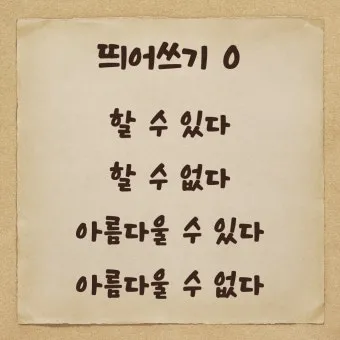 띄어쓰기 O
할 수 있다
할 수 없다
아름다울 수 있다
아름다울 수 없다